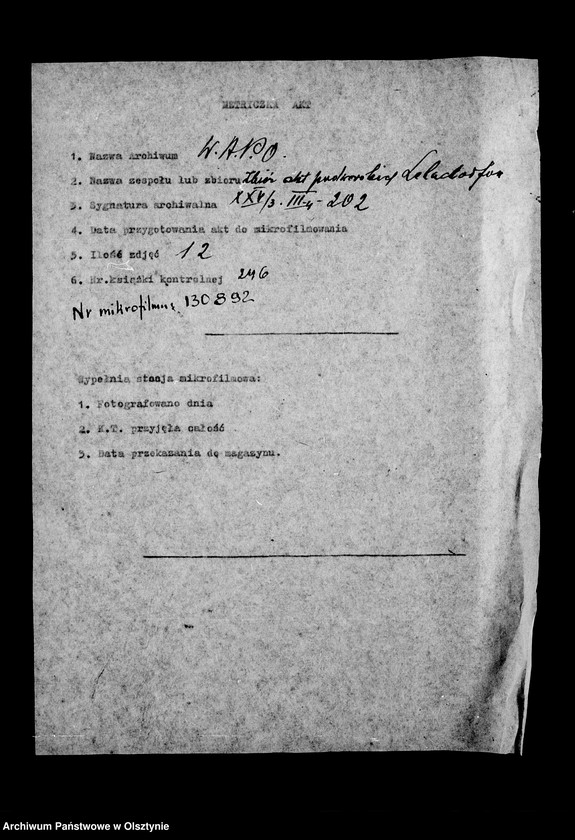 METRYCZKA AKT
1. Nazwa Archiwum W.A.P.O.
2. Nazwa zespołu lub zbioru Zbiór akt
3. Sygnatura archiwalna XXV/3. III4-202
4. Data przygotowania akt do mikrofilmowania
5. Ilość zdjęć 12
6. Nr.książki kontrolnej 246
Nr mikrofilmu 130892
Wypełnia stacja mikrofilmowa:
1. Fotografowano dnia
2. K.T. przyjęła całość
3. Data przekazania do magazynu.
Archiwum Państwowe w Olsztynie